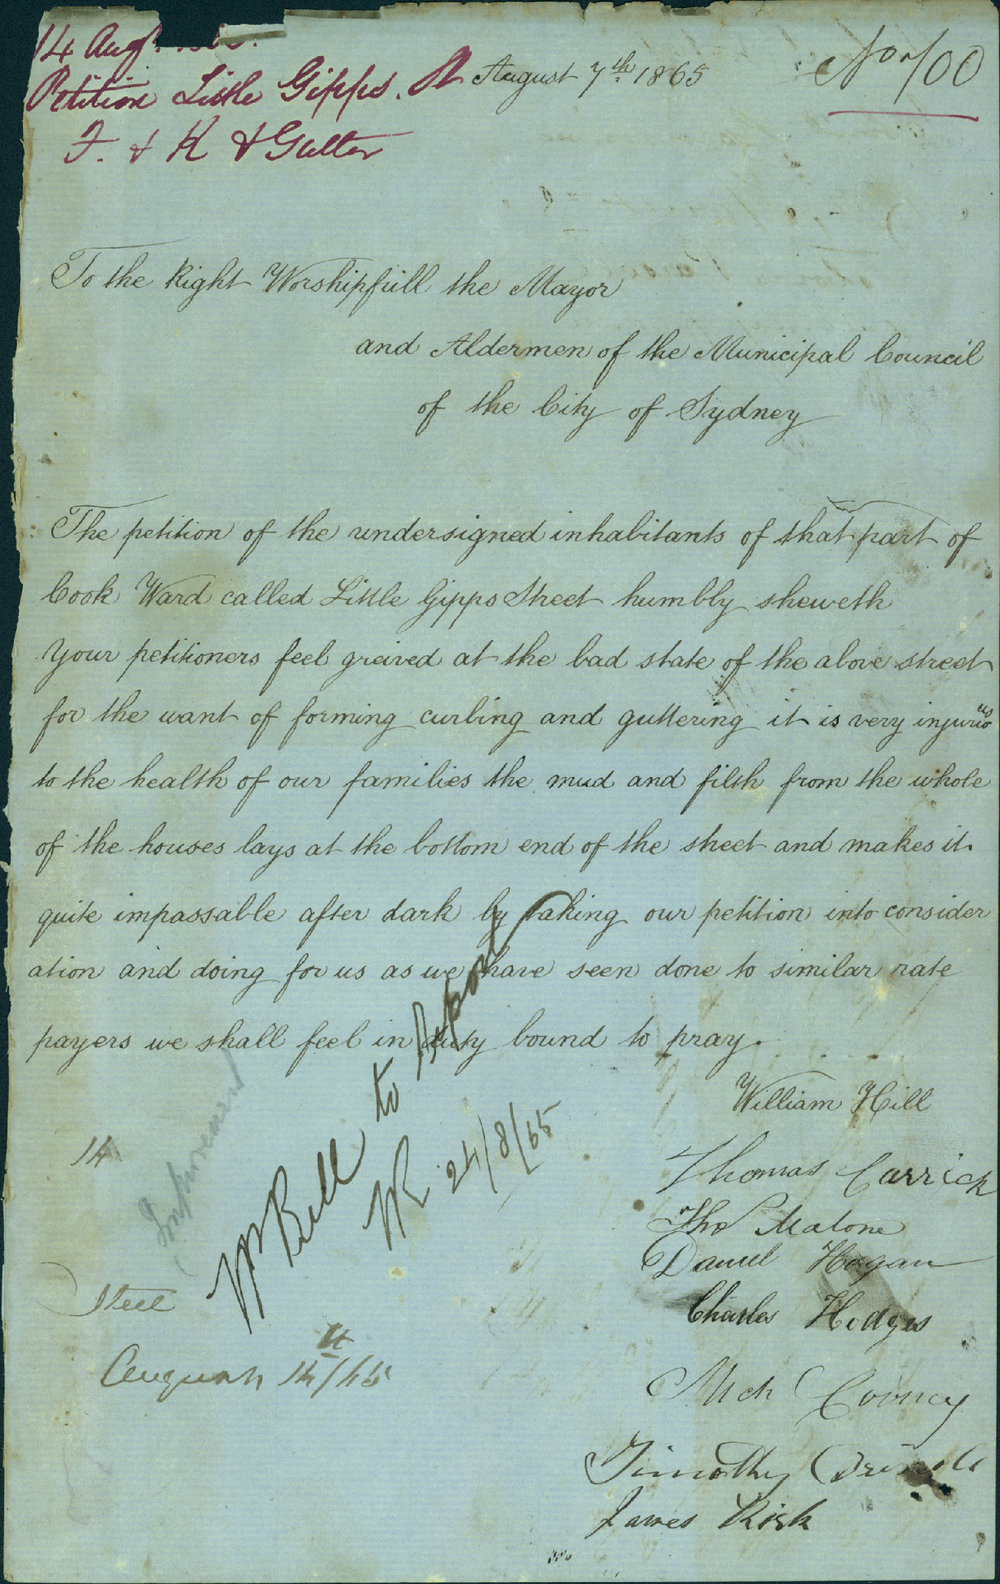 14 Augt.
Petition Little Gipps. St
F. & K & Gutter
August 7th 1865
No 700
To the Right Worshipfull the Mayor
and Aldermen of the Municipal Council
of the City of Sydney
The petition of the undersigned inhabitants of that part of
Cook Ward called Little Gipps Street humbly sheweth
Your petitioners feel greived at the bad state of the above street
for the want of forming curbing and guttering it is very injurious
to the health of our families the mud and filth from the whole
of the houses lays at the bottom end of the street and makes it
quite impassable after dark by taking our petition into consider
ation and doing for us as we have seen done to similar rate
payers we shall feel in duty bound to pray.
William Hill
Thomas Carrick
Thos Malone
Daniel Hogan
Charles Hodges
Mich Cooney
Timothy
James Kirk
14
Improvement
Mr Bell to Report
24/8/65
August 14/65